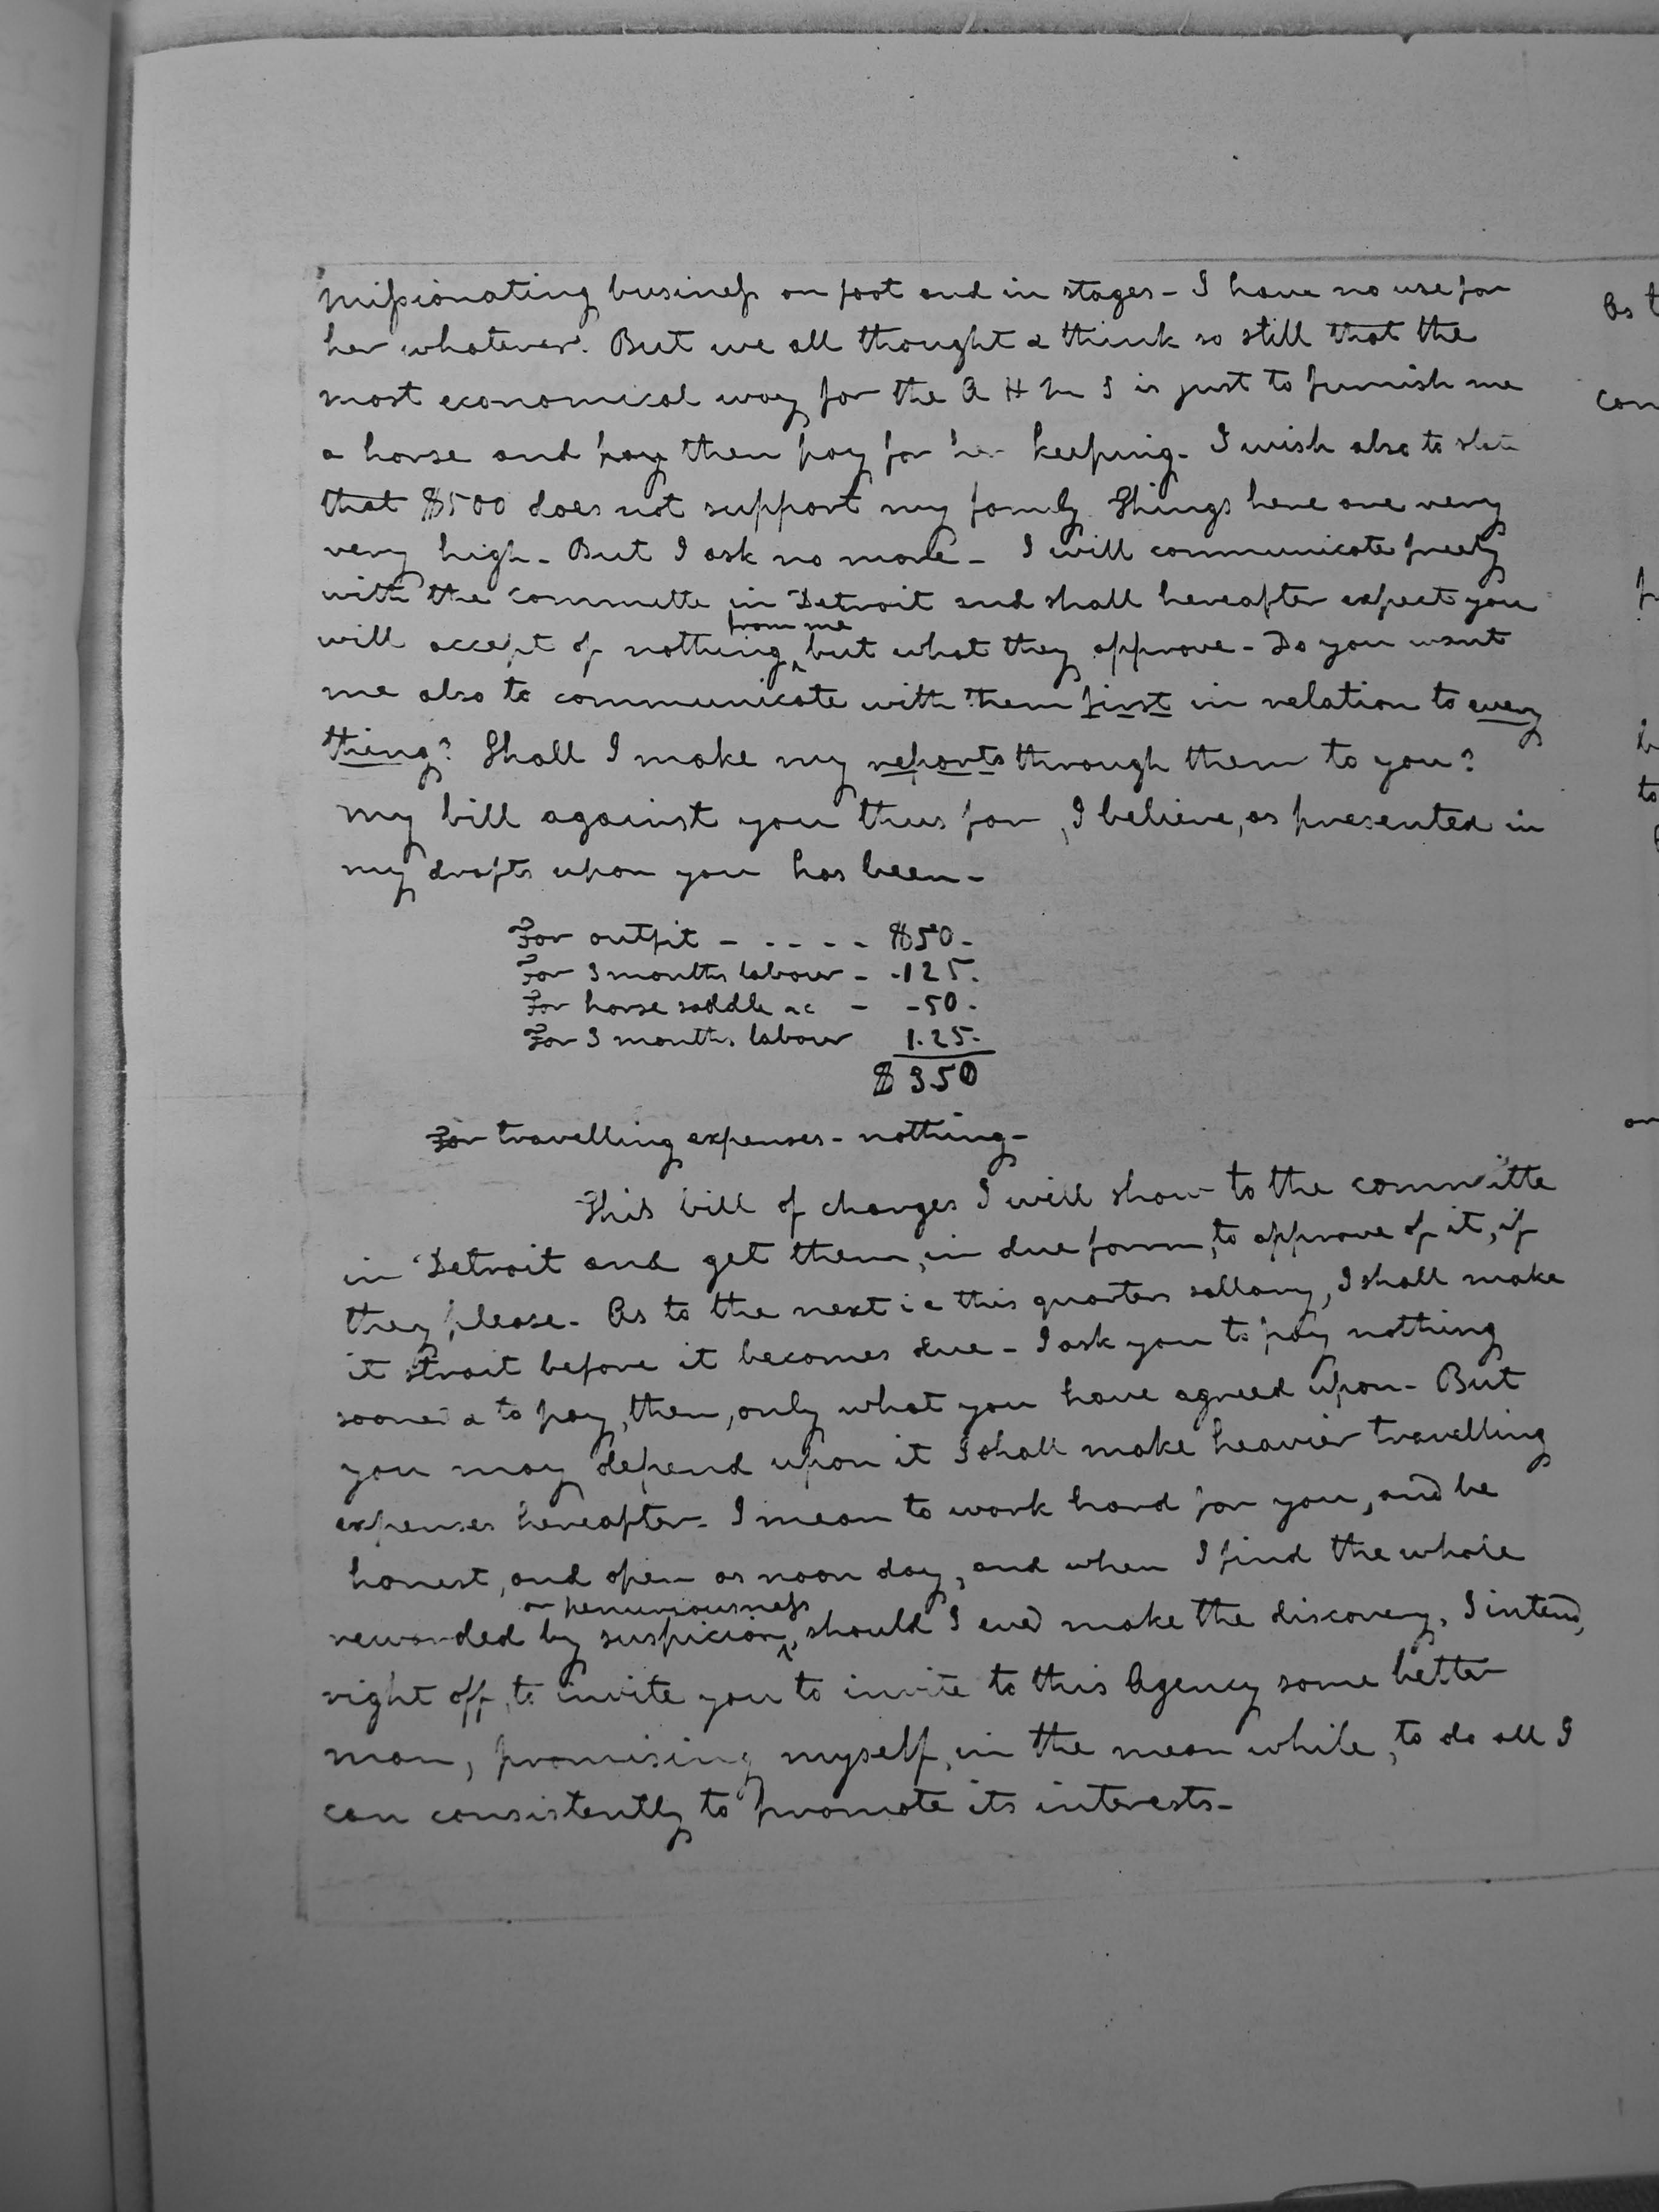 missionating business on foot and in stages - I have no use for
her whatever. But we all thought & think so still that the
most economical way for the A H M S is just to furnish me
a horse and pay then pay for her keeping. I wish also to state
that $500 does not support my family. Things here are very
very high - But I ask no more - I will communicate freely
with the committe in Detroit and shall hereafter expect you
from me
will accept of nothing ^ but what they approve - Do you want
me also to communicate with them first in relation to every
thing? Shall I make my reports through them to you?
My bill against you thus far, I believe, as presented in
my drafts upon you has been -
For outfit - - - - - $50 -
For 3 months labour - - 125.
For horse saddle &c - - 50 -
For 3 months labour 1.25.
$ 350
For travelling expenses - nothing -
This bill of charges I will show to the committe
in Detroit and get them, in due form, to approve of it, if
they please - As to the next i e this quarters sallary, I shall make
it strait before it becomes due - I ask you to pay nothing
sooner & to pay, then, only what you have agreed upon - But
you may depend upon it I shall make heavier travelling
expenses hereafter - I mean to work hard for you, and be
honest, and open as noon day, and when I find the whole
or penuriousness
rewarded by suspicion ^, should I ever make the discovery, I intend,
right off, to invite you to invite to this Agency some better
man, promising myself, in the mean while, to do all I
can consistently to promote its interests -
As t
com
f
b
to
on